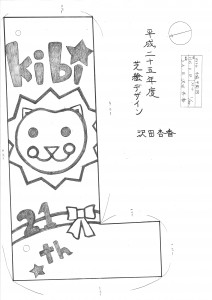 kibi
21
th
平成二十五年度
芝絵デザイン
沢田杏香